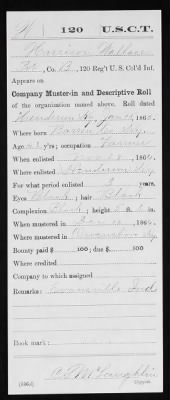 W | 120 | U.S.C.T.
Harrison Wallace
Pvt, Co. B, 120 Reg't U.S. Col'd Inf.
Appears on
Company Muster-in and Descriptive Roll
of the organization named above. Roll dated
Henderson Ky, 186
Where born Barren Co. Ky.
Age y'rs; occupation Farmer
When enlisted , 186
Where enlisted Henderson Ky.
For what period enlisted 3 years.
Eyes Black; hair Black
Complexion Black; height ft. in.
When mustered in , 186
Where mustered in Owensboro Ky.
Bounty paid $ 100; due $ 100
Where credited
Company to which assigned
Remarks: Evansville Ind
Book mark:
C. F. McLaughlin
Copyist.